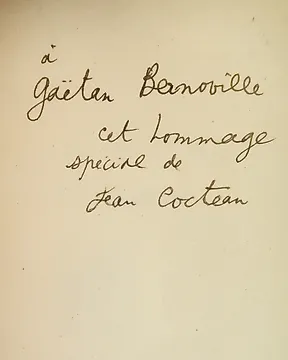 à
Gaëtan Bernoville
cet hommage
spécial de
Jean Cocteau